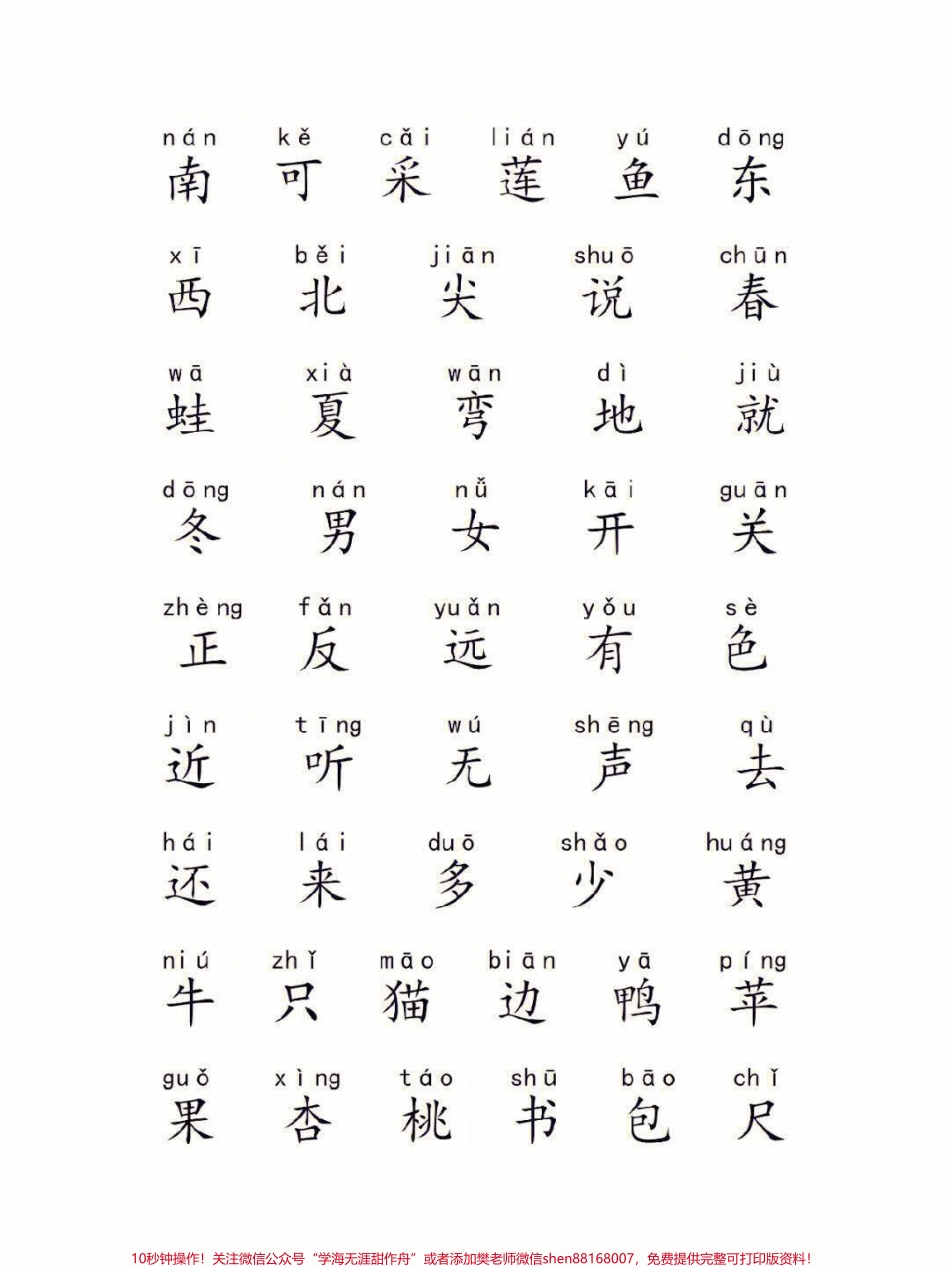 nán kě cǎi lián yú dōng
南 可 采 莲 鱼 东
xī běi jiān shuō chūn
西 北 尖 说 春
wā xià wān dì jiù
蛙 夏 弯 地 就
dōng nán nǚ kāi guān
冬 男 女 开 关
zhèng fǎn yuǎn yǒu sè
正 反 远 有 色
jìn tīng wú shēng qù
近 听 无 声 去
hái lái duō shǎo huáng
还 来 多 少 黄
niú zhǐ māo biān yā píng
牛 只 猫 边 鸭 苹
guǒ xìng táo shū bāo chǐ
果 杏 桃 书 包 尺
10秒钟操作！关注微信公众号“学海无涯甜作舟”或者添加樊老师微信shen88168007，免费提供完整可打印版资料！